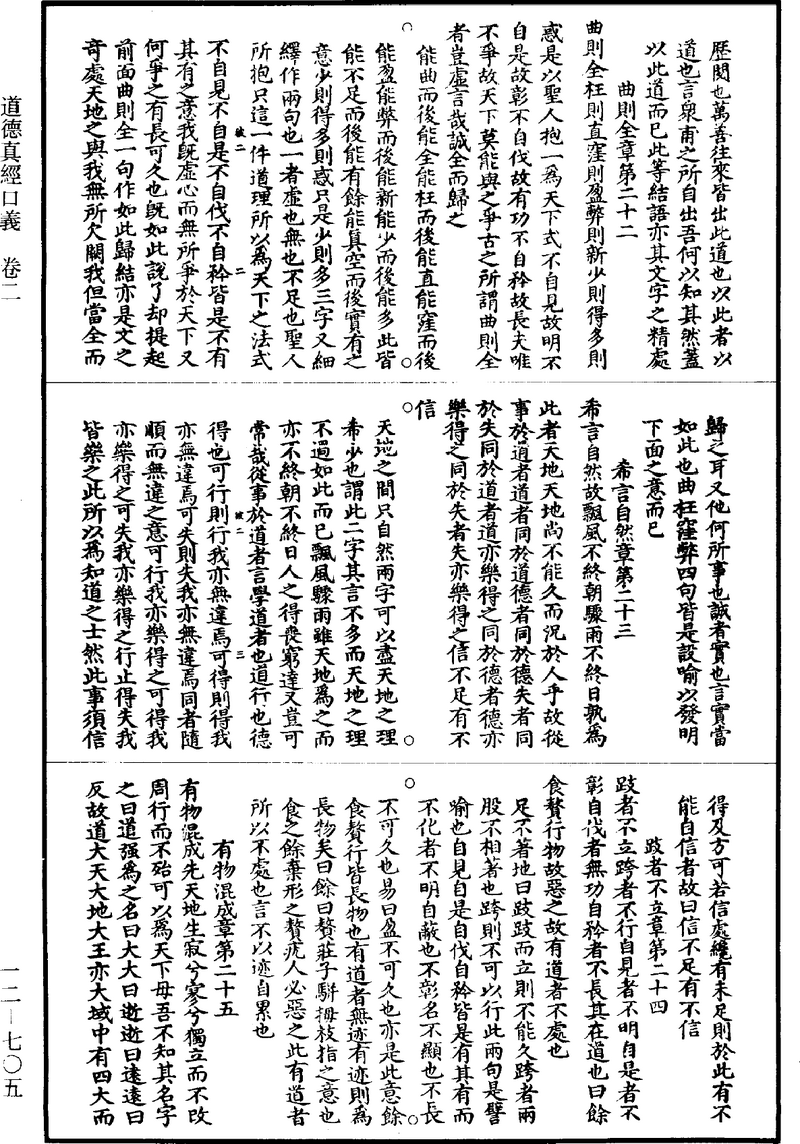 道德真經口義　卷二
一二—七〇五
歷閱也萬善往來皆出此道也以此者以
道也言衆甫之所自出吾何以知其然蓋
以此道而已此等結語亦其文字之精處
曲則全章第二十二
曲則全枉則直窪則盈弊則新少則得多則
惑是以聖人抱一為天下式不自見故明不
自是故彰不自伐故有功不自矜故長夫唯
不爭故天下莫能與之爭古之所謂曲則全
者豈虛言哉誠全而歸之
能曲而後能全能枉而後能直能窪而後
能盈能弊而後能新能少而後能多此皆
能不足而後能有餘能真空而後實有之
意少則得多則惑只是少則多三字又細
繹作兩句也一者虛也無也不足也聖人
所抱只這一件道理所以為天下之法式
不自見不自是不自伐不自矜皆是不有
其有之意我既虛心而無所爭於天下又
何爭之有長可久也既如此說了却提起
前面曲則全一句作如此歸結亦是文之
奇處天地之與我無所欠闕我但當全而
歸之耳又他何所事也誠者實也言實當
如此也曲枉窪弊四句皆是設喻以發明
下面之意而已
希言自然章第二十三
希言自然故飄風不終朝驟雨不終日孰為
此者天地天地尚不能久而況於人乎故從
事於道者道者同於道德者同於德失者同
於失同於道者道亦樂得之同於德者德亦
樂得之同於失者失亦樂得之信不足有不
信
天地之間只自然兩字可以盡天地之理
希少也謂此二字其言不多而天地之理
不過如此而已飄風驟雨雖天地為之而
亦不終朝不終日人之得喪窮達又豈可
常哉從事於道者言學道者也道行也德
得也可行則行我亦無違焉可得則得我
亦無違焉可失則失我亦無違焉同者隨
順而無違之意可行我亦樂得之可得我
亦樂得之可失我亦樂得之行止得失我
皆樂之此所以為知道之士然此事須信
得及方可若信處纔有未足則於此有不
能自信者故曰信不足有不信
跂者不立章第二十四
跂者不立跨者不行自見者不明自是者不
彰自伐者無功自矜者不長其在道也曰餘
食贅行物故惡之故有道者不處也
足不著地曰跂跂而立則不能久跨者兩
股不相著也跨則不可以行此兩句是譬
喻也自見自是自伐自矜皆是有其有而
不化者不明自蔽也不彰名不顯也不長
不可久也易曰盈不可久也亦是此意餘
食贅行皆長物也有道者無迹有迹則為
長物矣曰餘曰贅莊子駢拇枝指之意也
食之餘棄形之贅疣人必惡之此有道者
所以不處也言不以迹自累也
有物混成章第二十五
有物混成先天地生寂兮寥兮獨立而不改
周行而不殆可以為天下母吾不知其名字
之曰道强為之名曰大大曰逝逝曰遠遠曰
反故道大天大地大王亦大域中有四大而